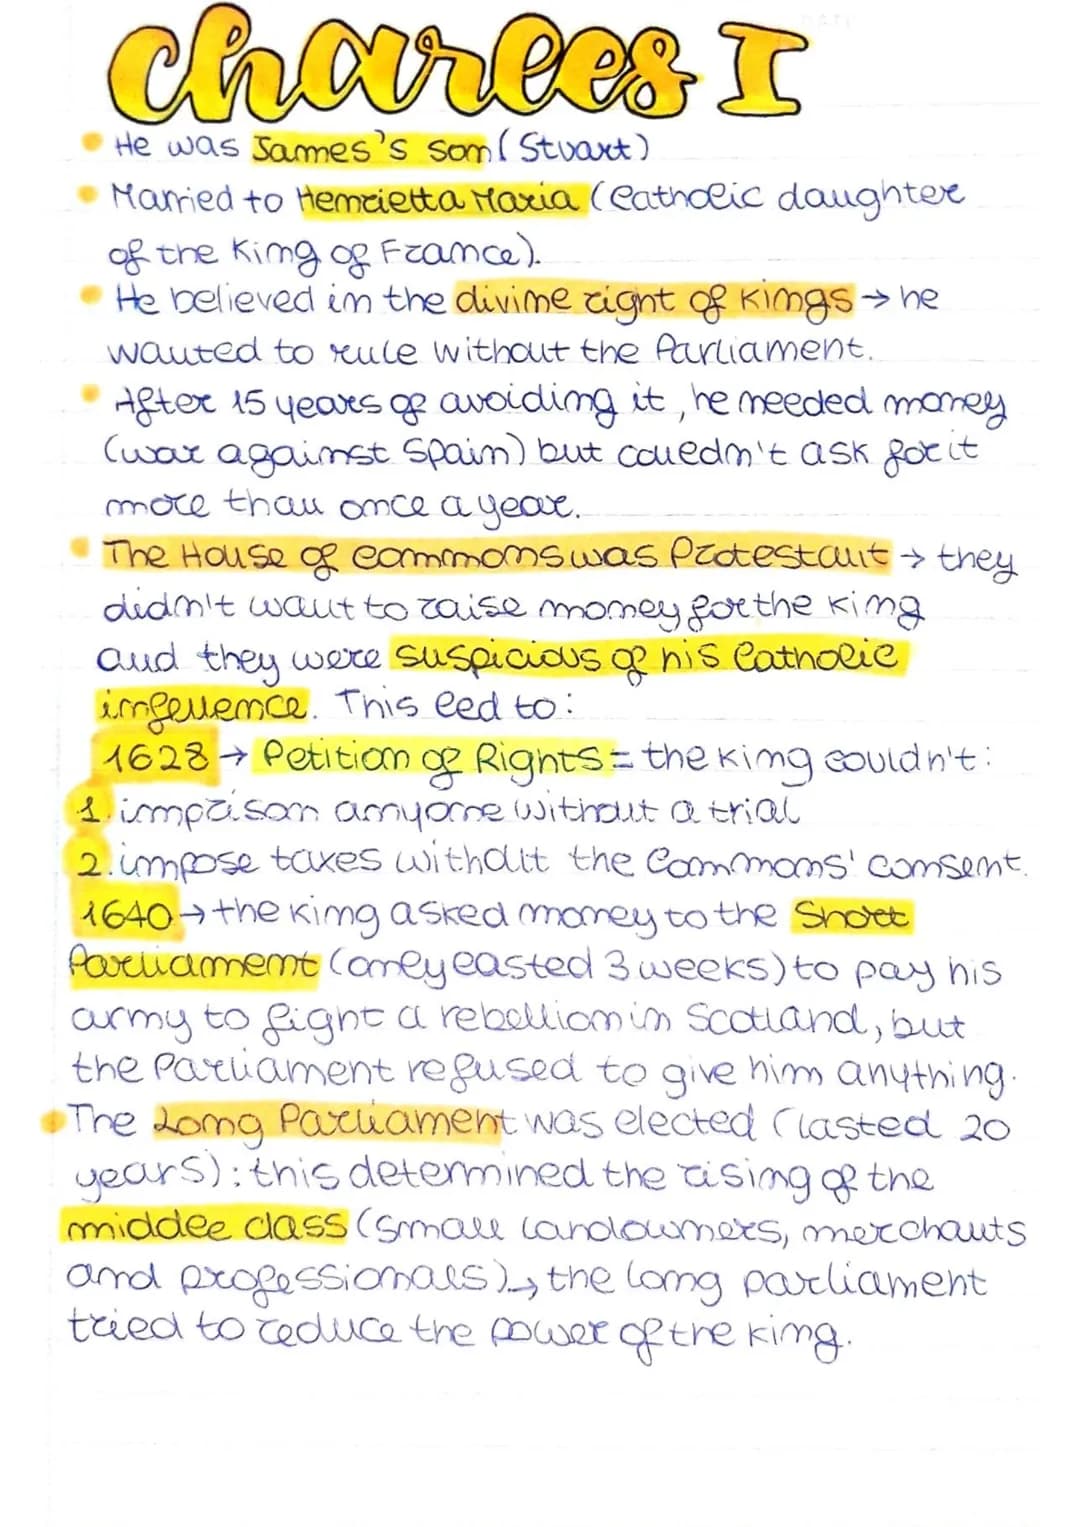 Charles I
He was James's son (Stuart)
Married to Henrietta Maria (Catholic daughter
of the King of France).
He believed in the divine right of Kings → he
wanted to rule without the Parliament.
After 15 years of avoiding it, he needed money
(war against Spain) but couldn't ask for it
more than once a year.
The House of Commons was Protestant → they
didn't want to raise money for the King
and they were suspicious of his Catholic
influence. This led to:
1628 → Petition of Rights = the King couldn't:
1. imprison anyone without a trial
2. impose taxes without the Commons' consent.
1640 → the King asked money to the Short
Parliament (only lasted 3 weeks) to pay his
army to fight a rebellion in Scotland, but
the Parliament refused to give him anything.
The Long Parliament was elected (lasted 20
years): this determined the rising of the
middle class (small landowners, merchants
and professionals) → the long parliament
tried to reduce the power of the King.